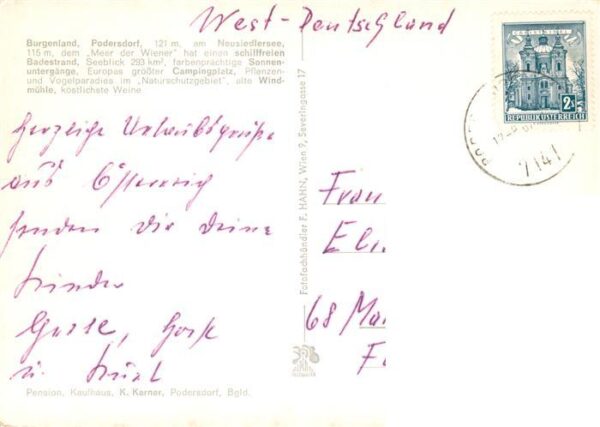 West-Deutschland
Burgenland, Podersdorf, 121 m, am Neusiedlersee,
115 m, dem „Meer der Wiener" hat einen schilffreien
Badestrand, Seeblick 293 km², farbenprächtige Sonnen-
untergänge, Europas größter Campingplatz, Pflanzen-
und Vogelparadies im „Naturschutzgebiet", alte Wind-
mühle, köstlichste Weine
Herzliche Urlaubsgrüße
aus Österreich
senden Dir Deine
Kinder
Horst
u.
Pension, Kaufhaus, K. Karner, Podersdorf, Bgld.
Fotofachhändler F. HAHN, Wien 9, Severingasse 17
2S
REPUBLIK ÖSTERREICH
7141
Frau
El
68 Ma